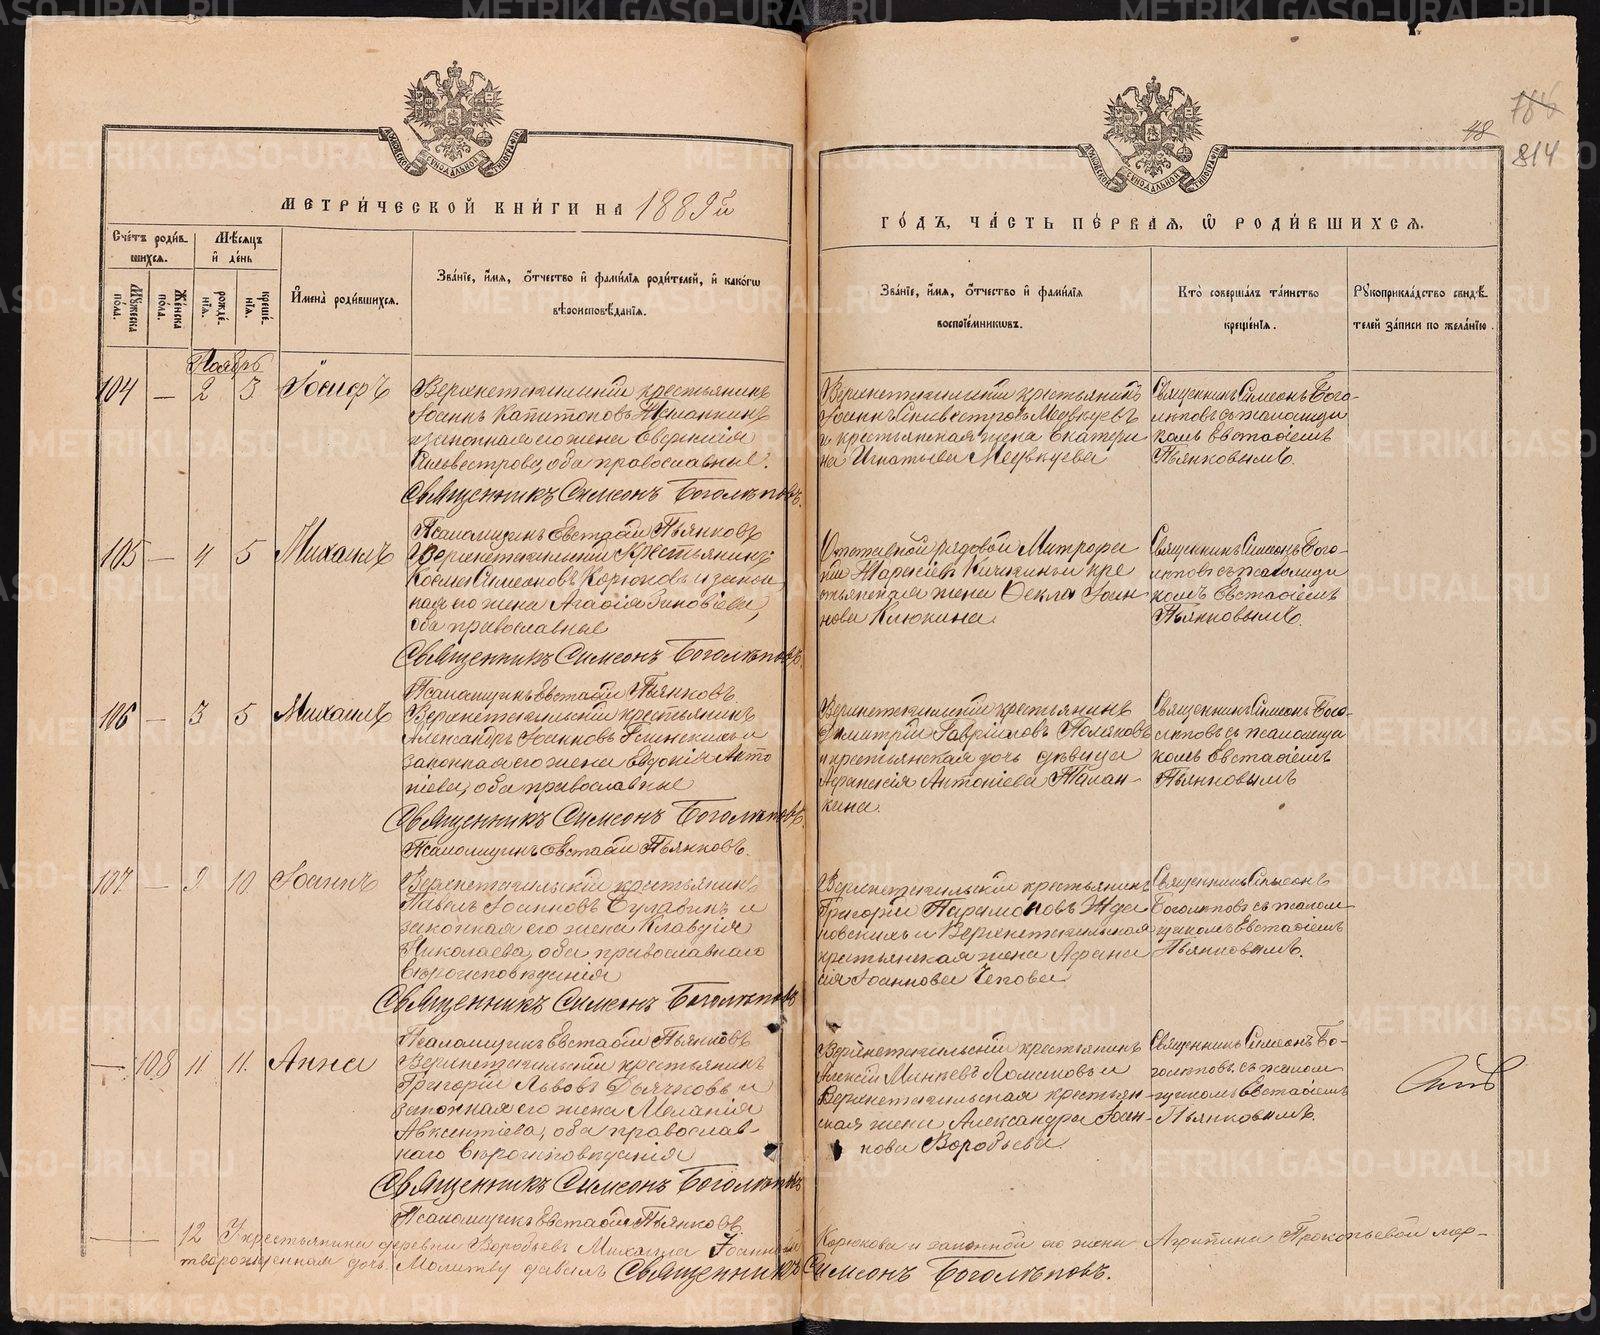 786
48
814
МОСКОВСКОЙ СИНОДАЛЬНОЙ ТИПОГРАФІИ
МОСКОВСКОЙ СИНОДАЛЬНОЙ ТИПОГРАФІИ
МЕТРИ́ЧЕСКОЙ КНИ́ГИ НА 1889й
ГО́ДЪ, ЧА́СТЬ ПЕ́РВАЯ, Ѡ РОДИ́ВШИХСЯ.
Сче́тъ роди́в-
шихся.
Мѣ́сяцъ
и҆ де́нь
Му́жеска по́ла.
Же́нска по́ла.
рожде́нїѧ.
креще́нїѧ.
И҆мена̀ роди́вшихсѧ.
Зва́нїе, и҆́мѧ, ѻ҆́тчество и҆ фами́лїѧ роди́телей, и҆ како́гѡ
вѣроисповѣ́данїѧ.
Зва́нїе, и҆́мѧ, ѻ҆́тчество и҆ фами́лїѧ
воспрїе́мникѡвъ.
Кто̀ соверша́лъ та́инство
креще́нїѧ.
Рꙋкоприкла́дство свидѣ́-
телей за́писи по жела́нїю.
Ноябрь
104 — 2 3 Іосифъ
Верхнетагильскій крестьянинъ
Іоаннъ Капитоновъ
и законная его жена Евгенія
Сильвестрова, оба православные.
Священникъ Симеонъ Боголѣповъ.
Псаломщикъ Евстафій Пьянковъ
Верхнетагильскій крестьянинъ
Іоаннъ Силвестровъ Медвѣдевъ
и крестьянская жена Екатери
на Игнатьева Медвѣдева
Священникъ Симеонъ Бого-
лѣповъ съ псаломщи
комъ Евстафіемъ
Пьянковымъ.
105 — 4 5 Михаилъ
Верхнетагильскій крестьянинъ
Косма Симеоновъ Корюковъ и закон
ная его жена Агафія Зиновіева,
оба православные
Священникъ Симеонъ Боголѣповъ.
Псаломщикъ Евстафій Пьянковъ
Отставной рядовой Митрофа
нъ Кичигинъ и кре
стьянская жена Ѳекла Іоан
нова Клюкина
Священникъ Симеонъ Бого-
лѣповъ съ псаломщи
комъ Евстафіемъ
Пьянковымъ.
106 — 3 5 Михаилъ
Верхнетагильскій крестьянинъ
Александръ Іоанновъ и
законная его жена Евдокія Анто
ніева, оба православные
Священникъ Симеонъ Боголѣповъ.
Псаломщикъ Евстафій Пьянковъ.
Верхнетагильскій крестьянинъ
Димитрій Гавріиловъ Поляковъ
и крестьянская дочь дѣвица
Афанасія Антоніева Талан-
кина.
Священникъ Симеонъ Бого-
лѣповъ съ псаломщи
комъ Евстафіемъ
Пьянковымъ
107 — 9 10. Іоаннъ
Верхнетагильскій крестьянинъ
Павелъ Іоанновъ Булавинъ и
законная его жена Клавдія
Николаева, оба православнаго
вѣроисповѣданія
Священникъ Симеонъ Боголѣповъ
Псаломщикъ Евстафій Пьянковъ
Верхнетагильскій крестьянинъ
Григорій Парамоновъ Жда
новскихъ и Верхнетагильская
крестьянская жена Афана
сія Іоаннова Чепова
Священникъ Симеонъ
Боголѣповъ съ псалом
щикомъ Евстафіемъ
Пьянковымъ.
— 108 11 11. Анна
Верхнетагильскій крестьянинъ
Григорій Львовъ Дьячковъ и
законная его жена Меланія
Авксентіева, оба православ-
наго вѣроисповѣданія
Священникъ Симеонъ Боголѣповъ
Псаломщикъ Евстафій Пьянковъ
Верхнетагильскій крестьянинъ
Алексій Минѣевъ Ломаковъ и
Верхнетагильская крестьян-
ская жена Александра Іоан-
нова Воробьева
Священникъ Симеонъ Бо-
голѣповъ съ псалом
щикомъ Евстафіемъ
Пьянковымъ.
12 У крестьянина деревни Воробьевъ Михаила Іоаннова Корюкова и законной его жены Агрипины Прокопьевой мер-
творожденная дочь. Молитву давалъ Священникъ Симеонъ Боголѣповъ.
METRIKI.GASO-URAL.RU